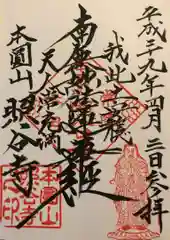 平成 九年四月三日参拝
我此土安穏
南無妙法蓮華経
天人常充満
本圓山
照谷寺
本圓山